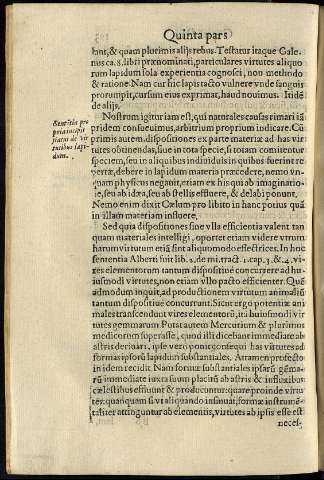 Quinta pars
sunt, & quam plurimis alijs rebus. Testatur itaque Gale-
nus ca. 8. libri prænominati, particulares virtutes aliquo
rum lapidum sola experientia cognosci, non methodo
& ratione. Nam cur sic lapis tacto vulnere vnde sanguis
prorumpit, cursum eius exprimat, haud nouimus. Itidē
de alijs.
Sententia pro
pria
virtutibus lapi-
dum.
Nostrum igitur iam est, qui naturales causas rimari iā
pridem consueuimus, arbitrium proprium indicare. Cū
primis autem dispositiones ex parte materiæ ad has vir
tutes obtinendas, siue in tota specie, si totam comitentur
speciem, seu in aliquibus indiuiduis in quibus fuerint re
pertæ, debere in lapidum materia præcedere, nemo vn-
quam physicus negauit, etiam ex his qui ab imaginatio-
ne, seu ab idæa, seu ab stellis effluere, & delabi ponunt.
Nemo enim dixit Cælum pro libito in hanc potius quā
in illam materiam influere.
Sed quia dispositiones siue vlla efficientia valent tan
quam materiales intelligi, oportet etiam videre vtrum
harum virtutum etiā sint aliquo modo effectrices. In hoc
sententia Alberti fuit lib. 2. de mi. tract. 1. cap. 3. & 4. vi-
res elementorum tantum dispositiuè concurrere ad hu
iusmodi virtutes, non etiam vllo pacto efficienter. Quē
admodum inquit, ad productionem virtutum animaliū
tantum dispositiuè concurrunt. Sicut ergo potentiæ ani
males transcendunt vires elementorū, ita huiusmodi vir
tutes gemmarum. Putat autem Mercurium & plurimos
medicorum superasse, quod illi dicebant immediate ab
astris deriuari. ipse vero ponit consequi has virtutes ad
formas ipsorū lapidum substantiales. Attamen profecto
in idem recidit. Nam formæ substantiales ipsarū gēma-
rū immediate iuxta suum placitū ab astris & influxibus
cælestibus effluunt & producuntur: quare proinde virtu-
tes: quanquam si vt aliquando insinuat, formæ instrumē-
taliter attinguntur ab elementis, virtutes ab ipsis esse est
neces-